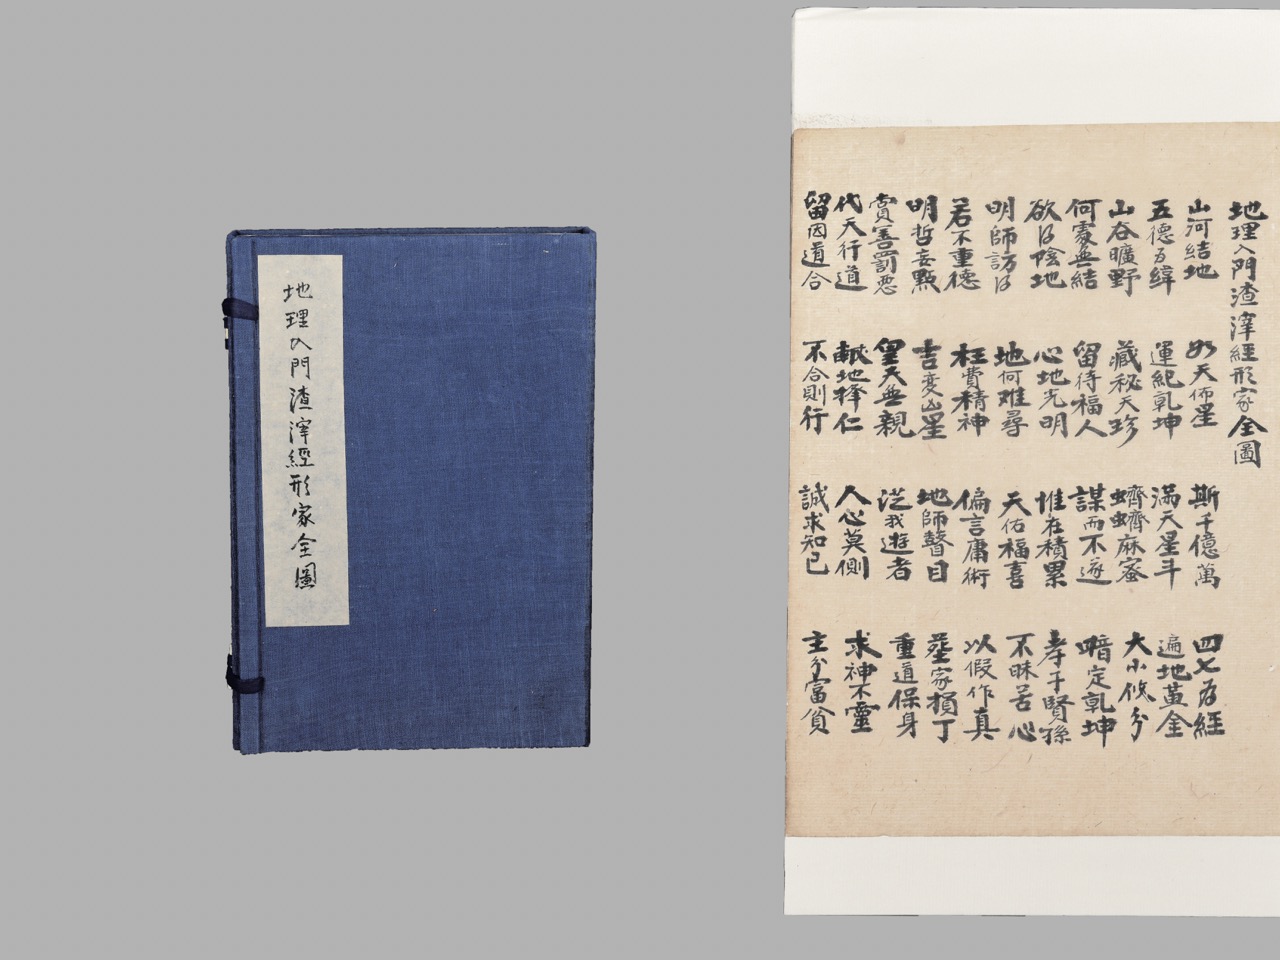 地理入門渣滓經形家全圖
地理入門渣滓經形家全圖
山河結地 如天佈星 斯千億萬 四七为經
五德为緯 運紀乾坤 滿天星斗 遍地黃金
山谷曠野 藏秘天珍 蠐蠐麻蜜 大小攸分
何處無結 留待福人 謀而不遂 暗定乾坤
欲得陰地 心地光明 惟在積累 孝子賢孫
明師訪得 地何难尋 天佑福喜 不昧苦心
若不重德 枉費精神 偏言庸術 以假作真
明哲妄點 吉变凶星 地師瞽目 塟家損丁
賞善罰惡 皇天無親 泛我遊者 重道保身
代天行道 献地擇仁 人心莫測 求神不靈
留因道合 不合則行 誠求知已 主分富貧